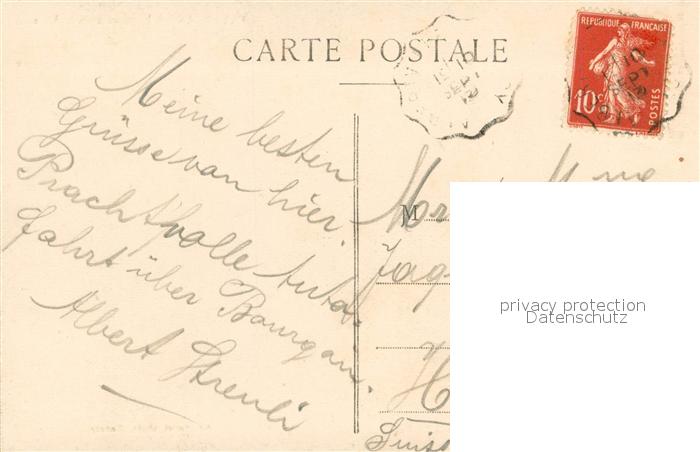 CARTE POSTALE
REPUBLIQUE FRANÇAISE
10c
POSTES
10
SEPT
Meine besten
Grüsse von hier.
Prachtvolle Auto-
fahrt über Bourgan.
Albert Streuli
M
privacy protection
Datenschutz